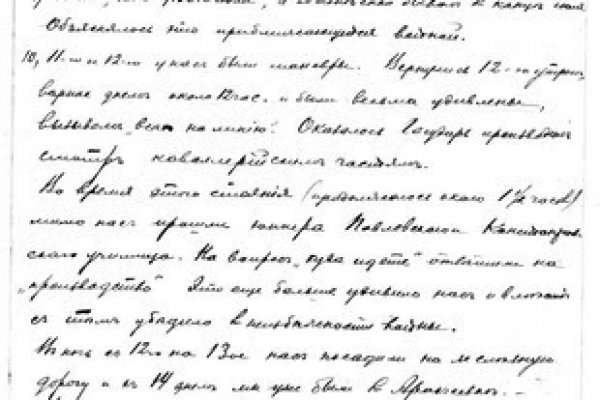 Объяснялось это приближающейся войной.
10, 11-го и 12-го у нас были маневры. Вернулись 12-го утром,
вернее днем около 12 час. и были весьма удивлены,
вызовом „всех на линию“. Оказалось Государь производил
смотр кавалерийским частям.
Во время этого стояния (продолжалось около 1½ часов)
мимо нас прошли юнкера Павловского
ского училища. На вопрос „куда идете“ отвечали на
„производство“ Это еще больше удивило нас и
с тем убедило в неизбежности войны.
В ночь с 12го на 13ое нас посадили на железную
дорогу и 14 днем мы уже были в